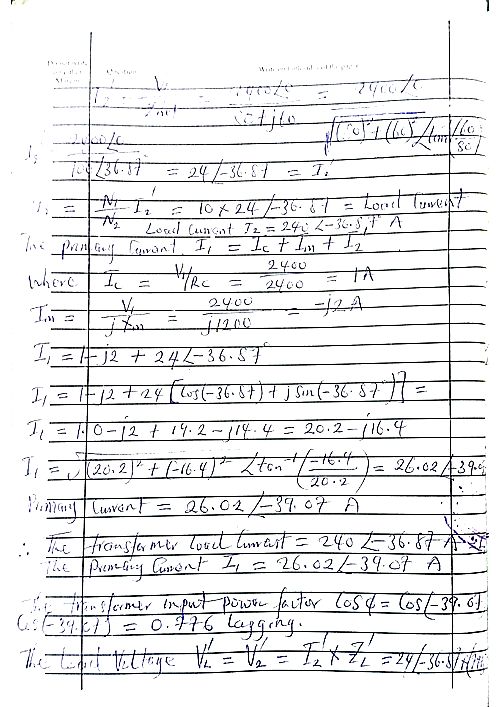 Question
I₂' = V₁ / Z'ref = 2400∠0 / 80+j60 = 2400∠0 / √(80)²+(60)² ∠tan(60/80)
I₂' = 2400∠0 / 100∠36.87 = 24∠-36.87 = I₂'
I₂ = N₁/N₂ I₂' = 10 × 24∠-36.87 = Load Current
Load Current I₂ = 240∠-36.87° A
The primary Current, I₁ = Ic + Im + I₂
where Ic = V₁/Rc = 2400/2400 = 1A
Im = V₁/jXm = 2400/j1200 = -j2 A
I₁ = 1-j2 + 24∠-36.87°
I₁ = 1-j2 + 24[Cos(-36.87) + j Sin(-36.87°)] =
I₁ = 1.0-j2 + 19.2-j14.4 = 20.2-j16.4
I₁ = √(20.2)²+(-16.4)² ∠tan⁻¹(-16.4/20.2) = 26.02∠-39.0
Primary Current = 26.02∠-39.07 A
∴ The transformer Load Current = 240∠-36.87 A
The Primary Current I₁ = 26.02∠-39.07 A
The transformer input power factor Cosφ = Cos(-39.07
Cos(-39.07) = 0.776 lagging.
The Load Voltage V'L = V₂' = I₂' × Z'L = 24∠-36.87×